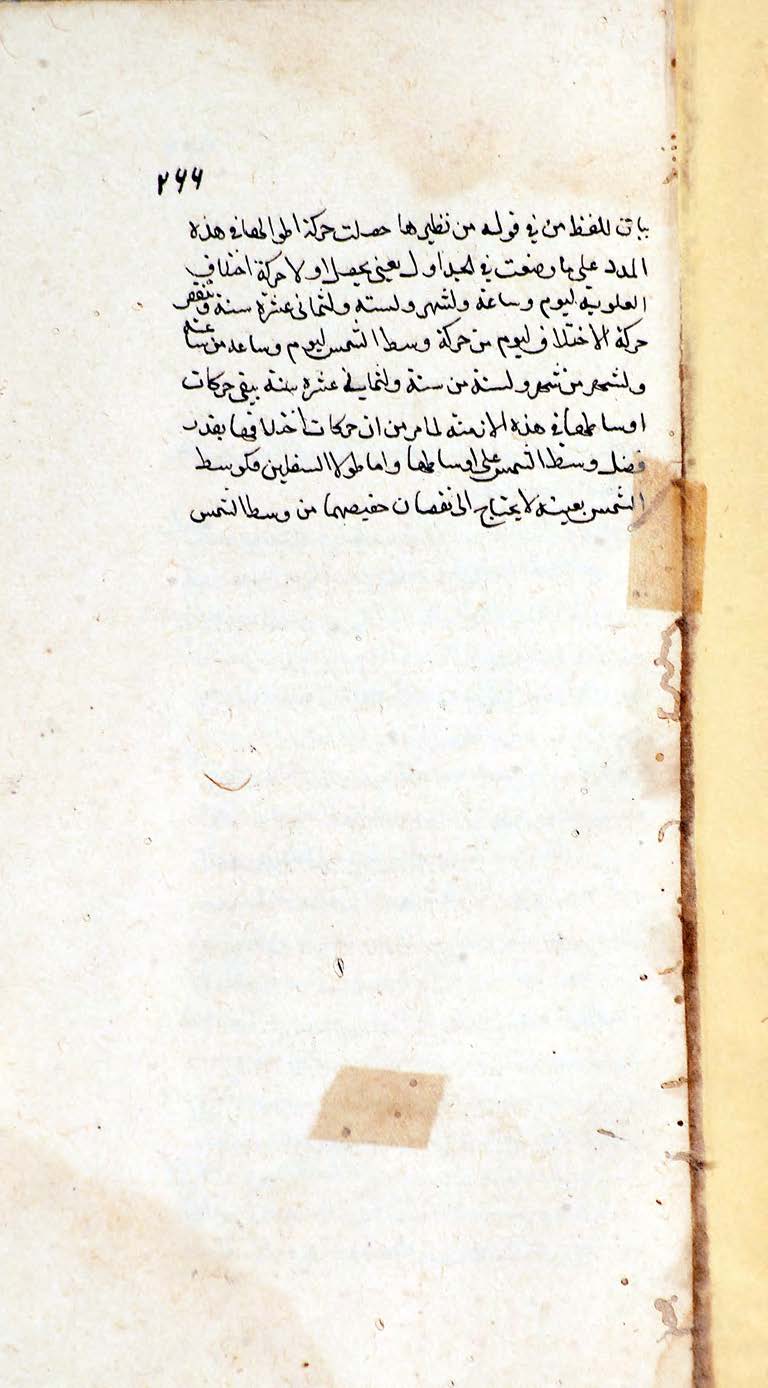 ٢٦٦
بيان للفظ من في قوله من نظيرها حصلت حركة اطوالها في هذه
المدد على ما وضعت في الجداول يعني يحصل اولا حركة اختلاف
العلوية ليوم وساعة ولشهر ولسنه ولثماني عشرة سنة وينقص
حركة الاختلاف ليوم من حركة وسط الشمس ليوم وساعه من ساعته
ولشهر من شهر ولسنة من سنة ولثماني عشرة سنة يبقى حركات
اوساطها في هذه الازمنة لما مر من ان حركات اختلافها بقدر
فضل وسط الشمس على اوساطها واما طولا السفلين فكوسط
الشمس بعينه لا يحتاج الى نقصان حضيضهما من وسط الشمس